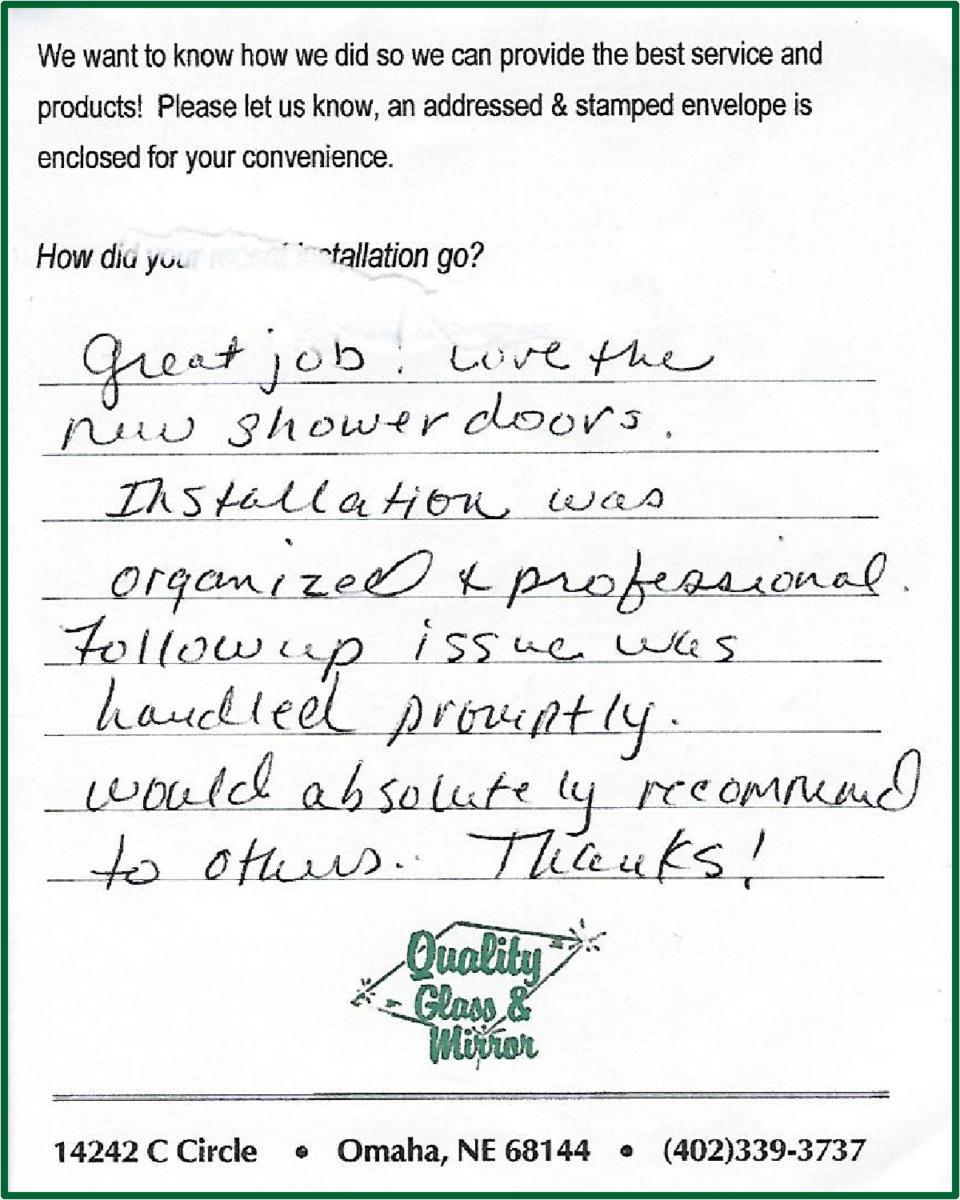 We want to know how we did so we can provide the best service and
products! Please let us know, an addressed & stamped envelope is
enclosed for your convenience.
How did your recent installation go?
Great job! Love the
new shower doors.
Installation was
organized & professional.
Followup issue was
handled promptly.
would absolutely recommend
to others. Thanks!
Quality
Glass &
Mirror
14242 C Circle • Omaha, NE 68144 • (402)339-3737